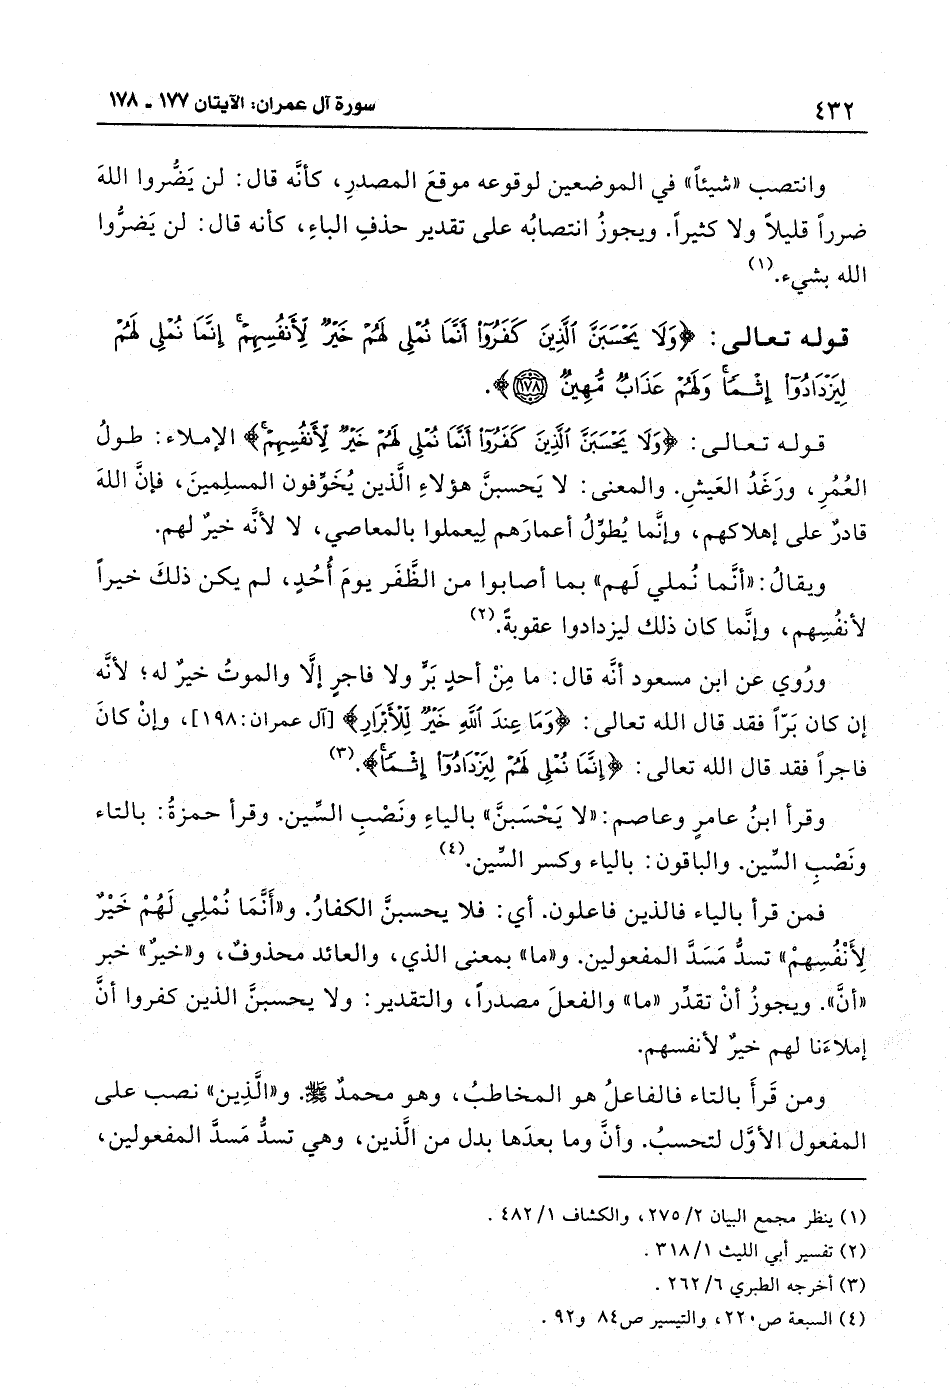 ٤٣٢
سورة آل عمران: الآيتان ١٧٧ - ١٧٨
وانتصب «شيئاً» في الموضعين لوقوعه موقعَ المصدرِ، كأنَّه قال: لن يَضُّروا اللهَ
ضرراً قليلاً ولا كثيراً. ويجوزُ انتصابُه على تقدير حذفِ الباءِ، كأنه قال: لن يَضرُّوا
الله بشيء.(١)
قوله تعالى: ﴿وَلَا يَحْسَبَنَّ الَّذِينَ كَفَرُوٓا۟ أَنَّمَا نُمْلِى لَهُمْ خَيْرٌ لِّأَنفُسِهِمْ ۚ إِنَّمَا نُمْلِى لَهُمْ
لِيَزْدَادُوٓا۟ إِثْمًا ۚ وَلَهُمْ عَذَابٌ مُّهِينٌ ١٧٨﴾.
قوله تعالى: ﴿وَلَا يَحْسَبَنَّ الَّذِينَ كَفَرُوٓا۟ أَنَّمَا نُمْلِى لَهُمْ خَيْرٌ لِّأَنفُسِهِمْ ۚ﴾ الإملاء: طولُ
العُمُرِ، ورَغَدُ العَيشِ. والمعنى: لا يَحسبنَّ هؤلاءِ الَّذين يُخَوِّفون المسلِمينَ، فإنَّ اللهَ
قادرٌ على إهلاكهم، وإنَّما يُطوِّلُ أعمارَهم لِيعملوا بالمعاصي، لا لأنَّه خيرٌ لهم.
ويقالُ: «أنَّما نُملي لَهم» بما أصابوا من الظَّفَر يومَ أُحُدٍ، لم يكن ذلكَ خيراً
لأنفُسِهم، وإنَّما كان ذلك ليزدادوا عقوبةً.(٢)
ورُوي عن ابن مسعود أنَّه قال: ما مِنْ أحدٍ بَرٍّ ولا فاجرٍ إلَّا والموتُ خيرٌ له؛ لأنَّه
إن كان بَرّاً فقد قال الله تعالى: ﴿وَمَا عِندَ اللَّهِ خَيْرٌ لِّلْأَبْرَارِ﴾ [آل عمران: ١٩٨]، وإنْ كانَ
فاجراً فقد قال الله تعالى: ﴿إِنَّمَا نُمْلِى لَهُمْ لِيَزْدَادُوٓا۟ إِثْمًا ۚ﴾.(٣)
وقرأ ابنُ عامرٍ وعاصم: «لا يَحْسَبنَّ» بالياءِ ونَصْبِ السِّين. وقرأ حمزةُ: بالتاء
ونَصْبِ السِّين. والباقون: بالياء وكسر السِّين.(٤)
فمن قرأ بالياء فالذين فاعلون. أي: فلا يحسبنَّ الكفارُ. و«أَنَّمَا نُمْلِي لَهُمْ خَيْرٌ
لِأَنْفُسِهِمْ» تسدُّ مَسَدَّ المفعولين. و«ما» بمعنى الذي، والعائد محذوفٌ، و«خيرٌ» خبر
«أنَّ». ويجوزُ أنْ تقدِّر «ما» والفعلَ مصدراً، والتقدير: ولا يحسبنَّ الذين كفروا أنَّ
إملاءَنا لهم خيرٌ لأنفسهم.
ومن قَرأَ بالتاء فالفاعلُ هو المخاطبُ، وهو محمدٌ ﷺ. و«الَّذِين» نصب على
المفعول الأوَّل لتحسبُ. وأنَّ وما بعدَها بدل من الَّذين، وهي تسدُّ مَسدَّ المفعولين،
(١) ينظر مجمع البيان ٢/ ٢٧٥، والكشاف ١/ ٤٨٢ .
(٢) تفسير أبي الليث ١/ ٣١٨ .
(٣) أخرجه الطبري ٦/ ٢٦٢ .
(٤) السبعة ص٢٢٠، والتيسير ص٨٤ و٩٢ .